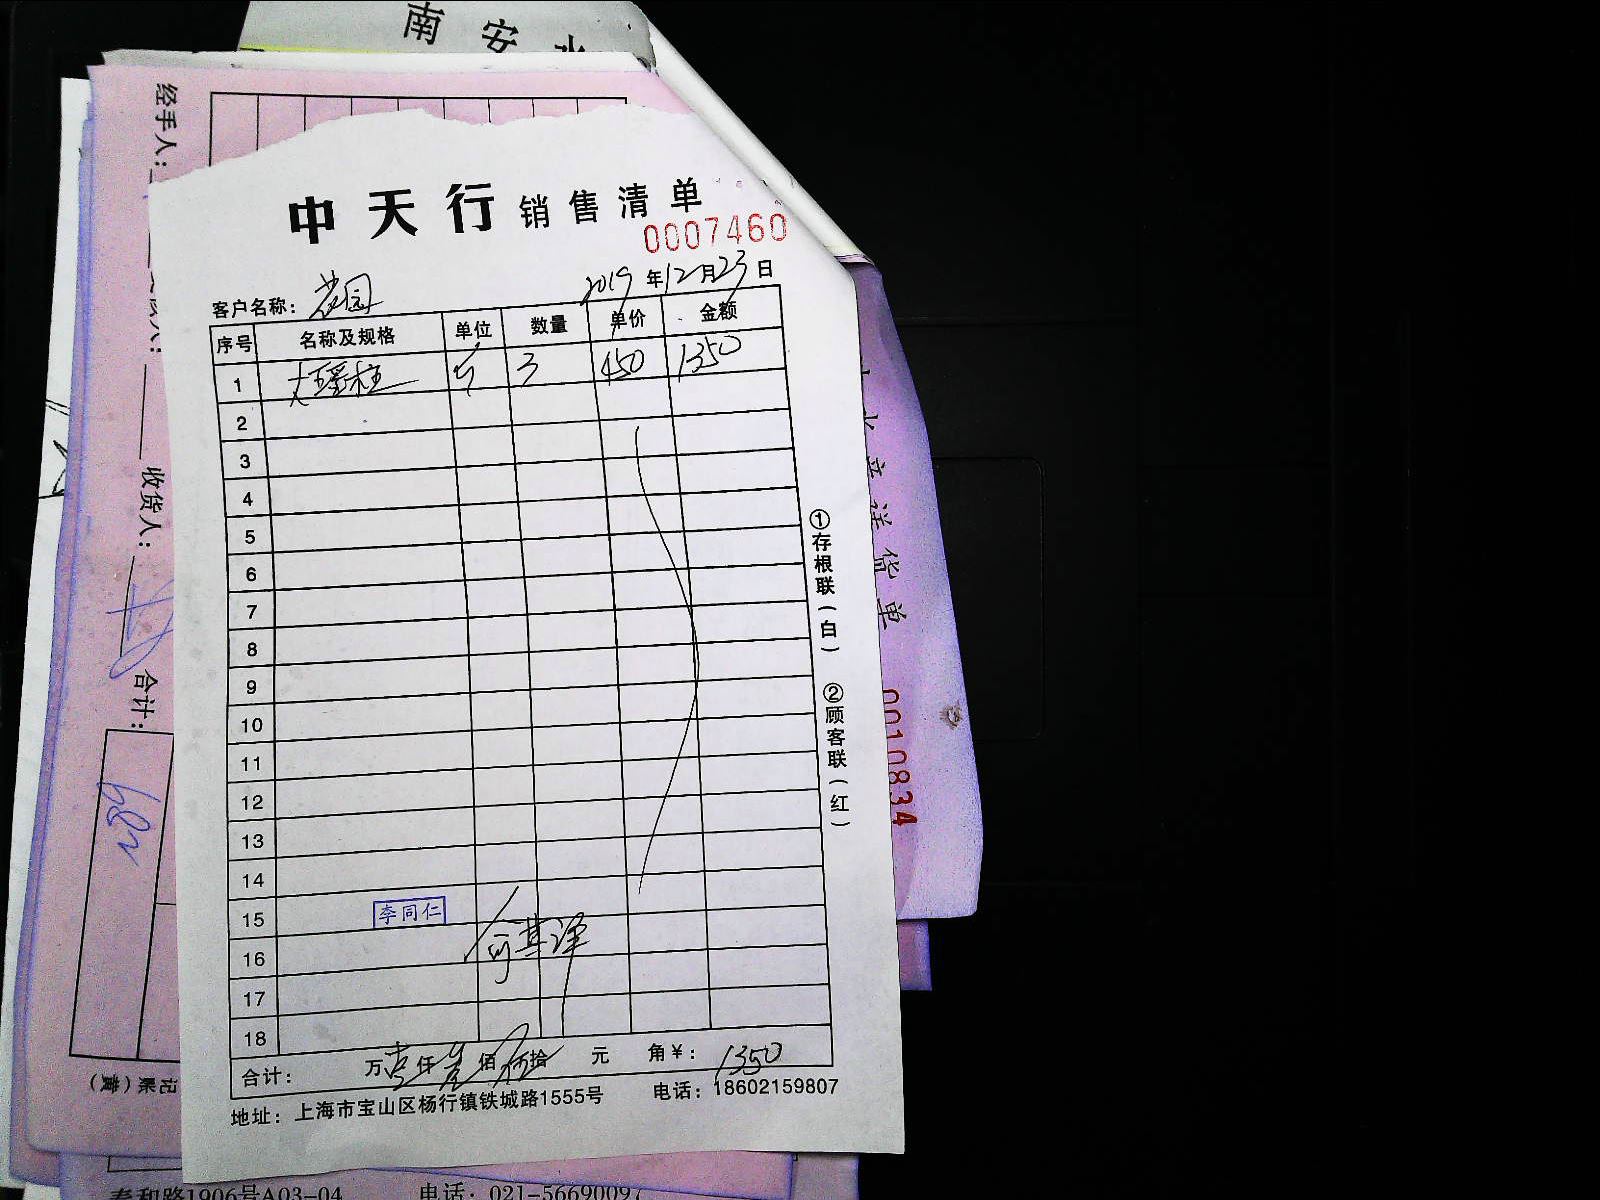 南安水
经手人:
收货人:
合计:
中天行 销售清单
0007460
客户名称: 花园 2019年12月23日
序号 名称及规格 单位 数量 单价 金额
1 大瑶柱 斤 3 450 1350
2
3
4
5
6
7
8
9
10
11
12
13
14
15 李同仁
16
17
18
合计: 万壹仟叁佰伍拾 元 角¥: 1350
地址: 上海市宝山区杨行镇铁城路1555号 电话: 18602159807
①存根联(白) ②顾客联(红)
0010834
泰和路1906号A03-04 电话: 021-56690097